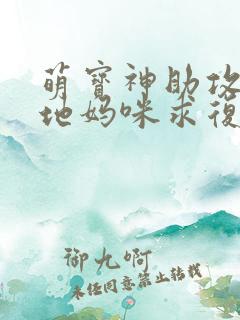 萌寶神助攻
地媽咪求復
御九啊
未经同意禁止转载